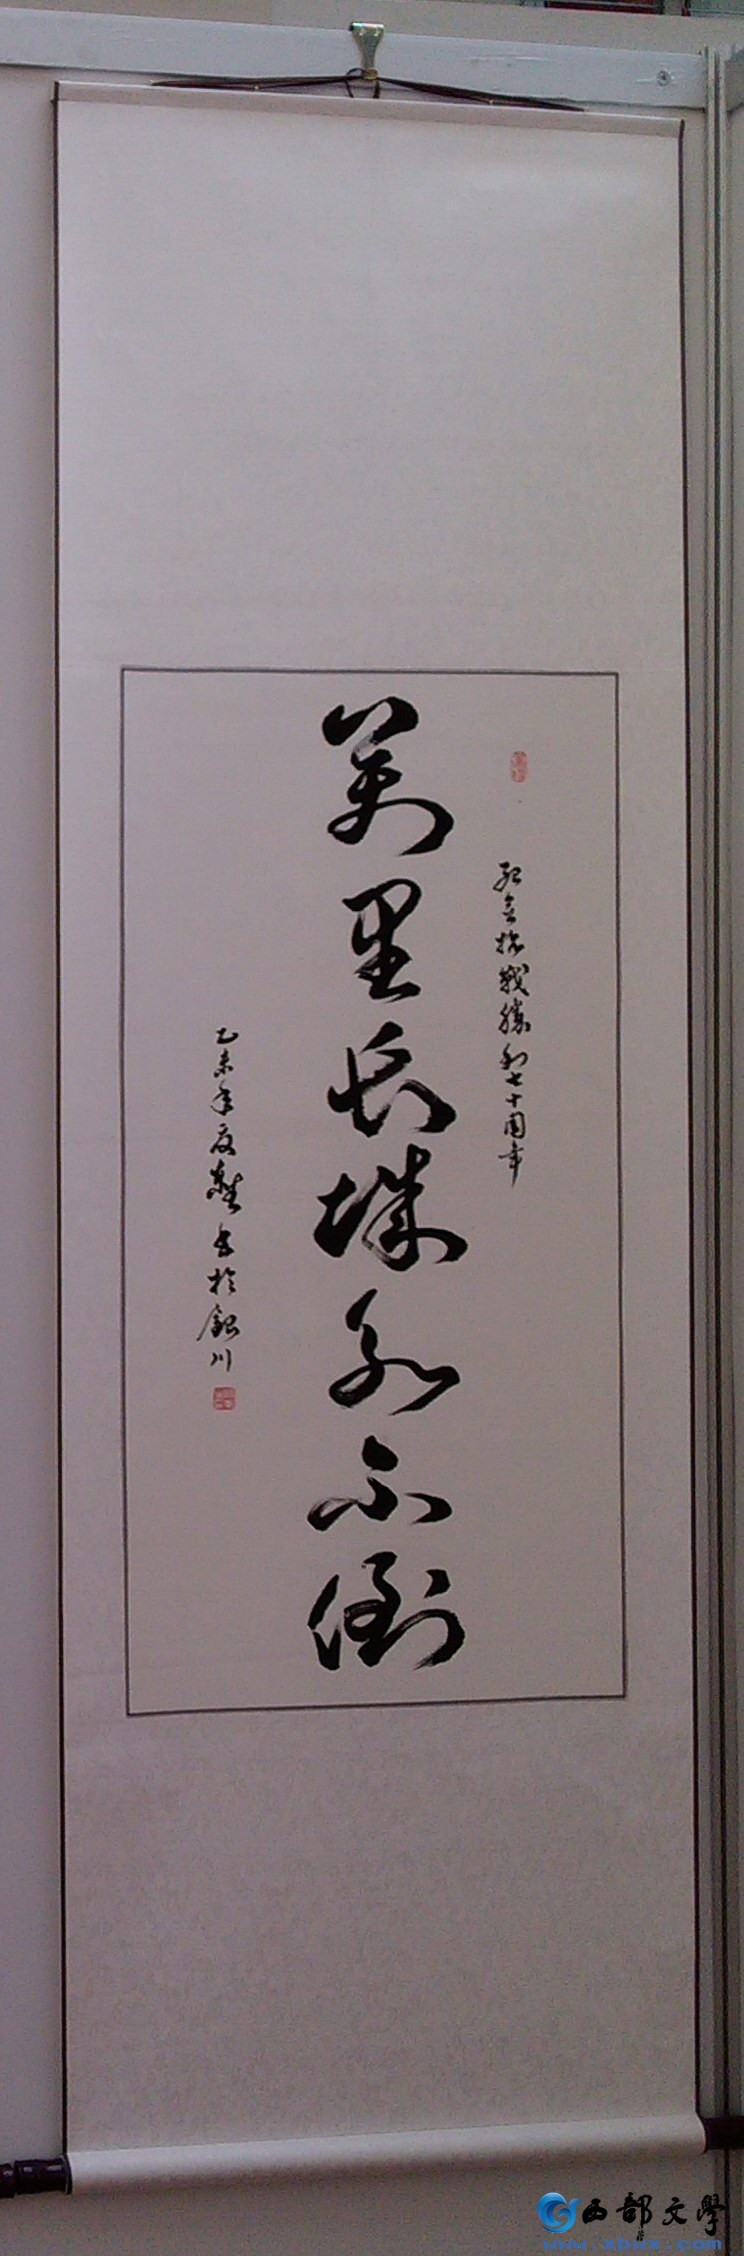 紀念抗戰勝利七十周年
萬里長城永不倒
乙未年夏 書於銀川
西部文學
www.xbwx.com